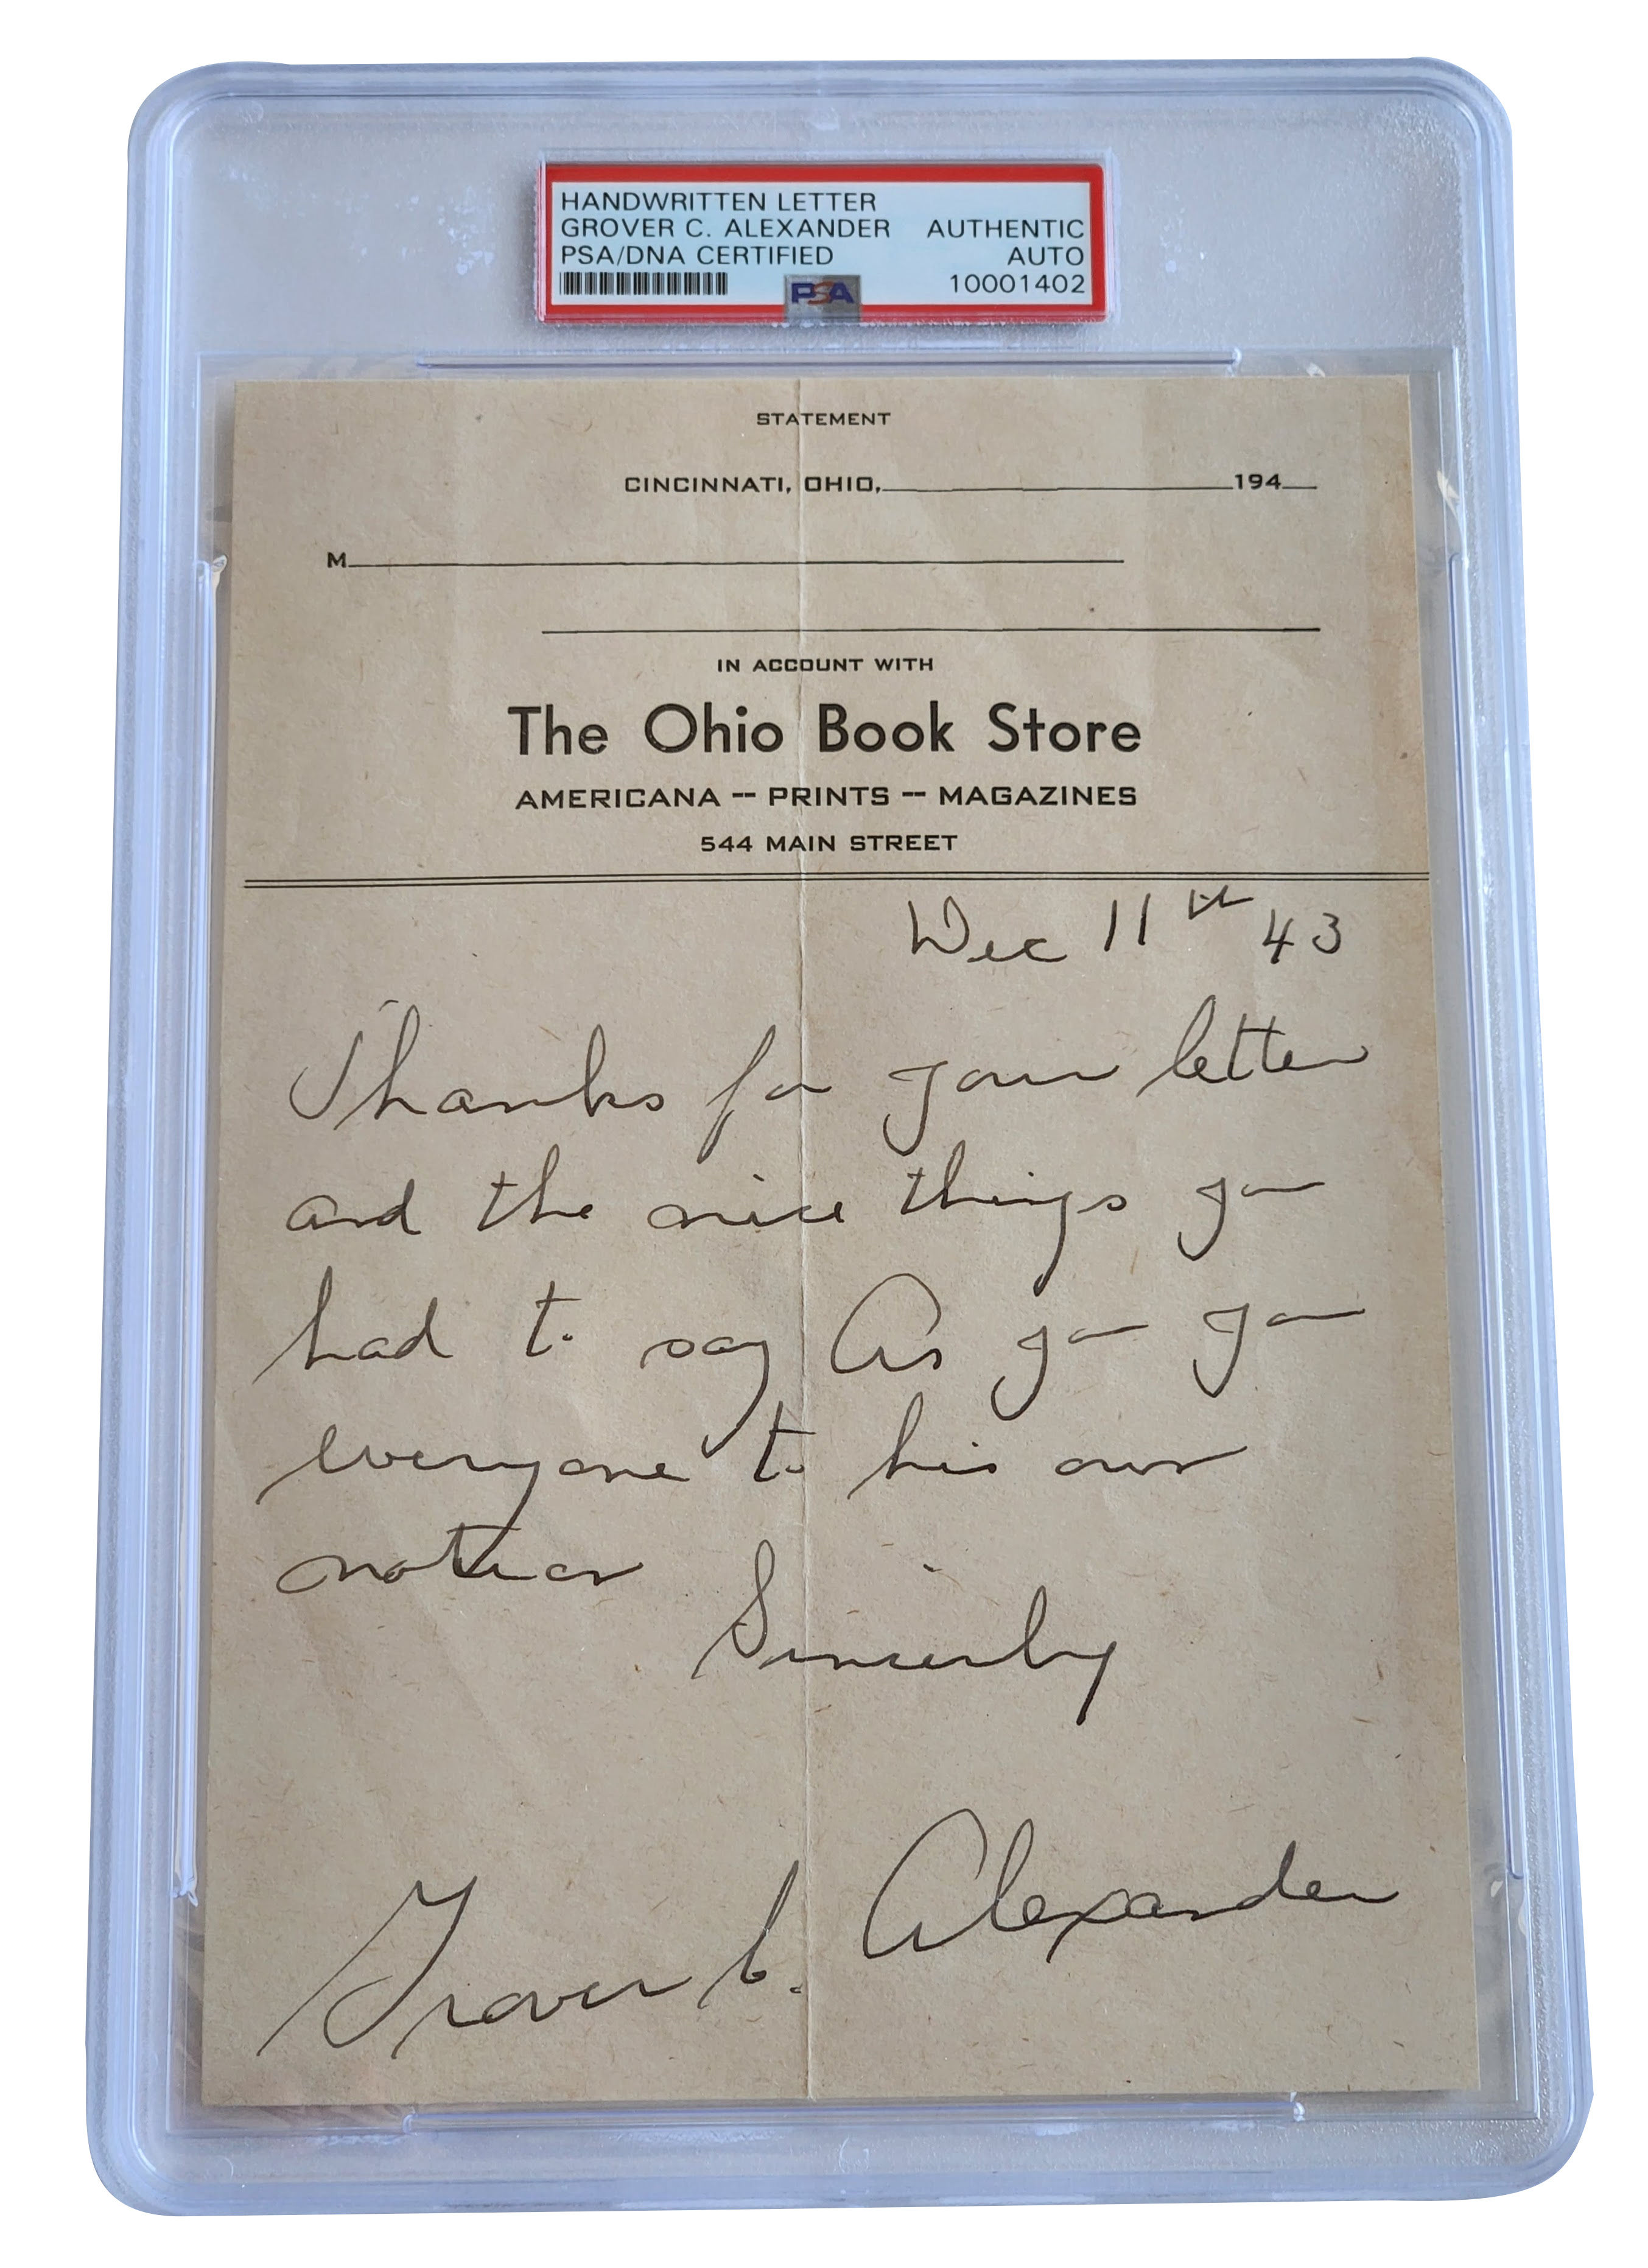 HANDWRITTEN LETTER
GROVER C. ALEXANDER AUTHENTIC
PSA/DNA CERTIFIED AUTO
PSA 10001402
STATEMENT
CINCINNATI, OHIO, 194
M
IN ACCOUNT WITH
The Ohio Book Store
AMERICANA -- PRINTS -- MAGAZINES
544 MAIN STREET
Dec 11th 43
Thanks for your letter
and the nice things you
had to say As you you
everyone to his own
notion
Sincerely
Grover C. Alexander